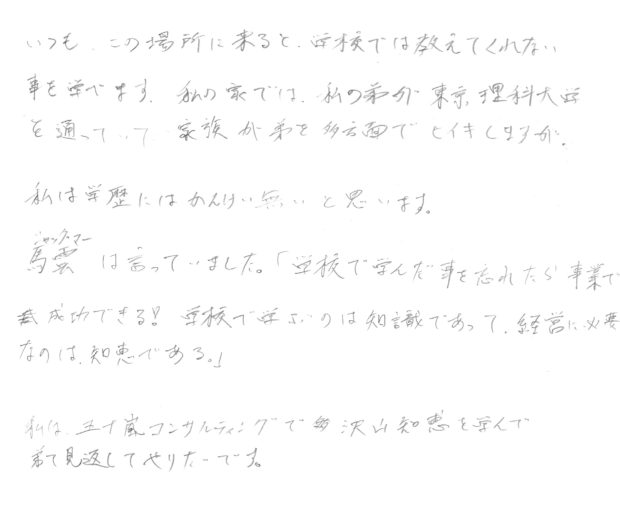 いつも、この場所に来ると、学校では教えてくれない
事を学べます。私の家では、私の弟が東京理科大学
を通っていて家族が弟を多方面でヒイキしますが、
私は学歴にはかんけい無いと思います。
ジャック・マー
馬雲は言っていました。「学校で学んだ事を忘れたら事業で
成功できる!学校で学ぶのは知識であって、経営に必要
なのは、知恵である。」
私は、五十嵐コンサルティングで沢山知恵を学んで
弟て見返してやりたーです。